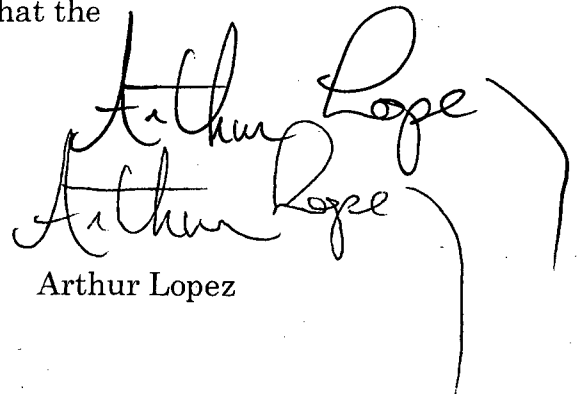 hat the
Arthur Lopez
Arthur Lopez
Arthur Lopez